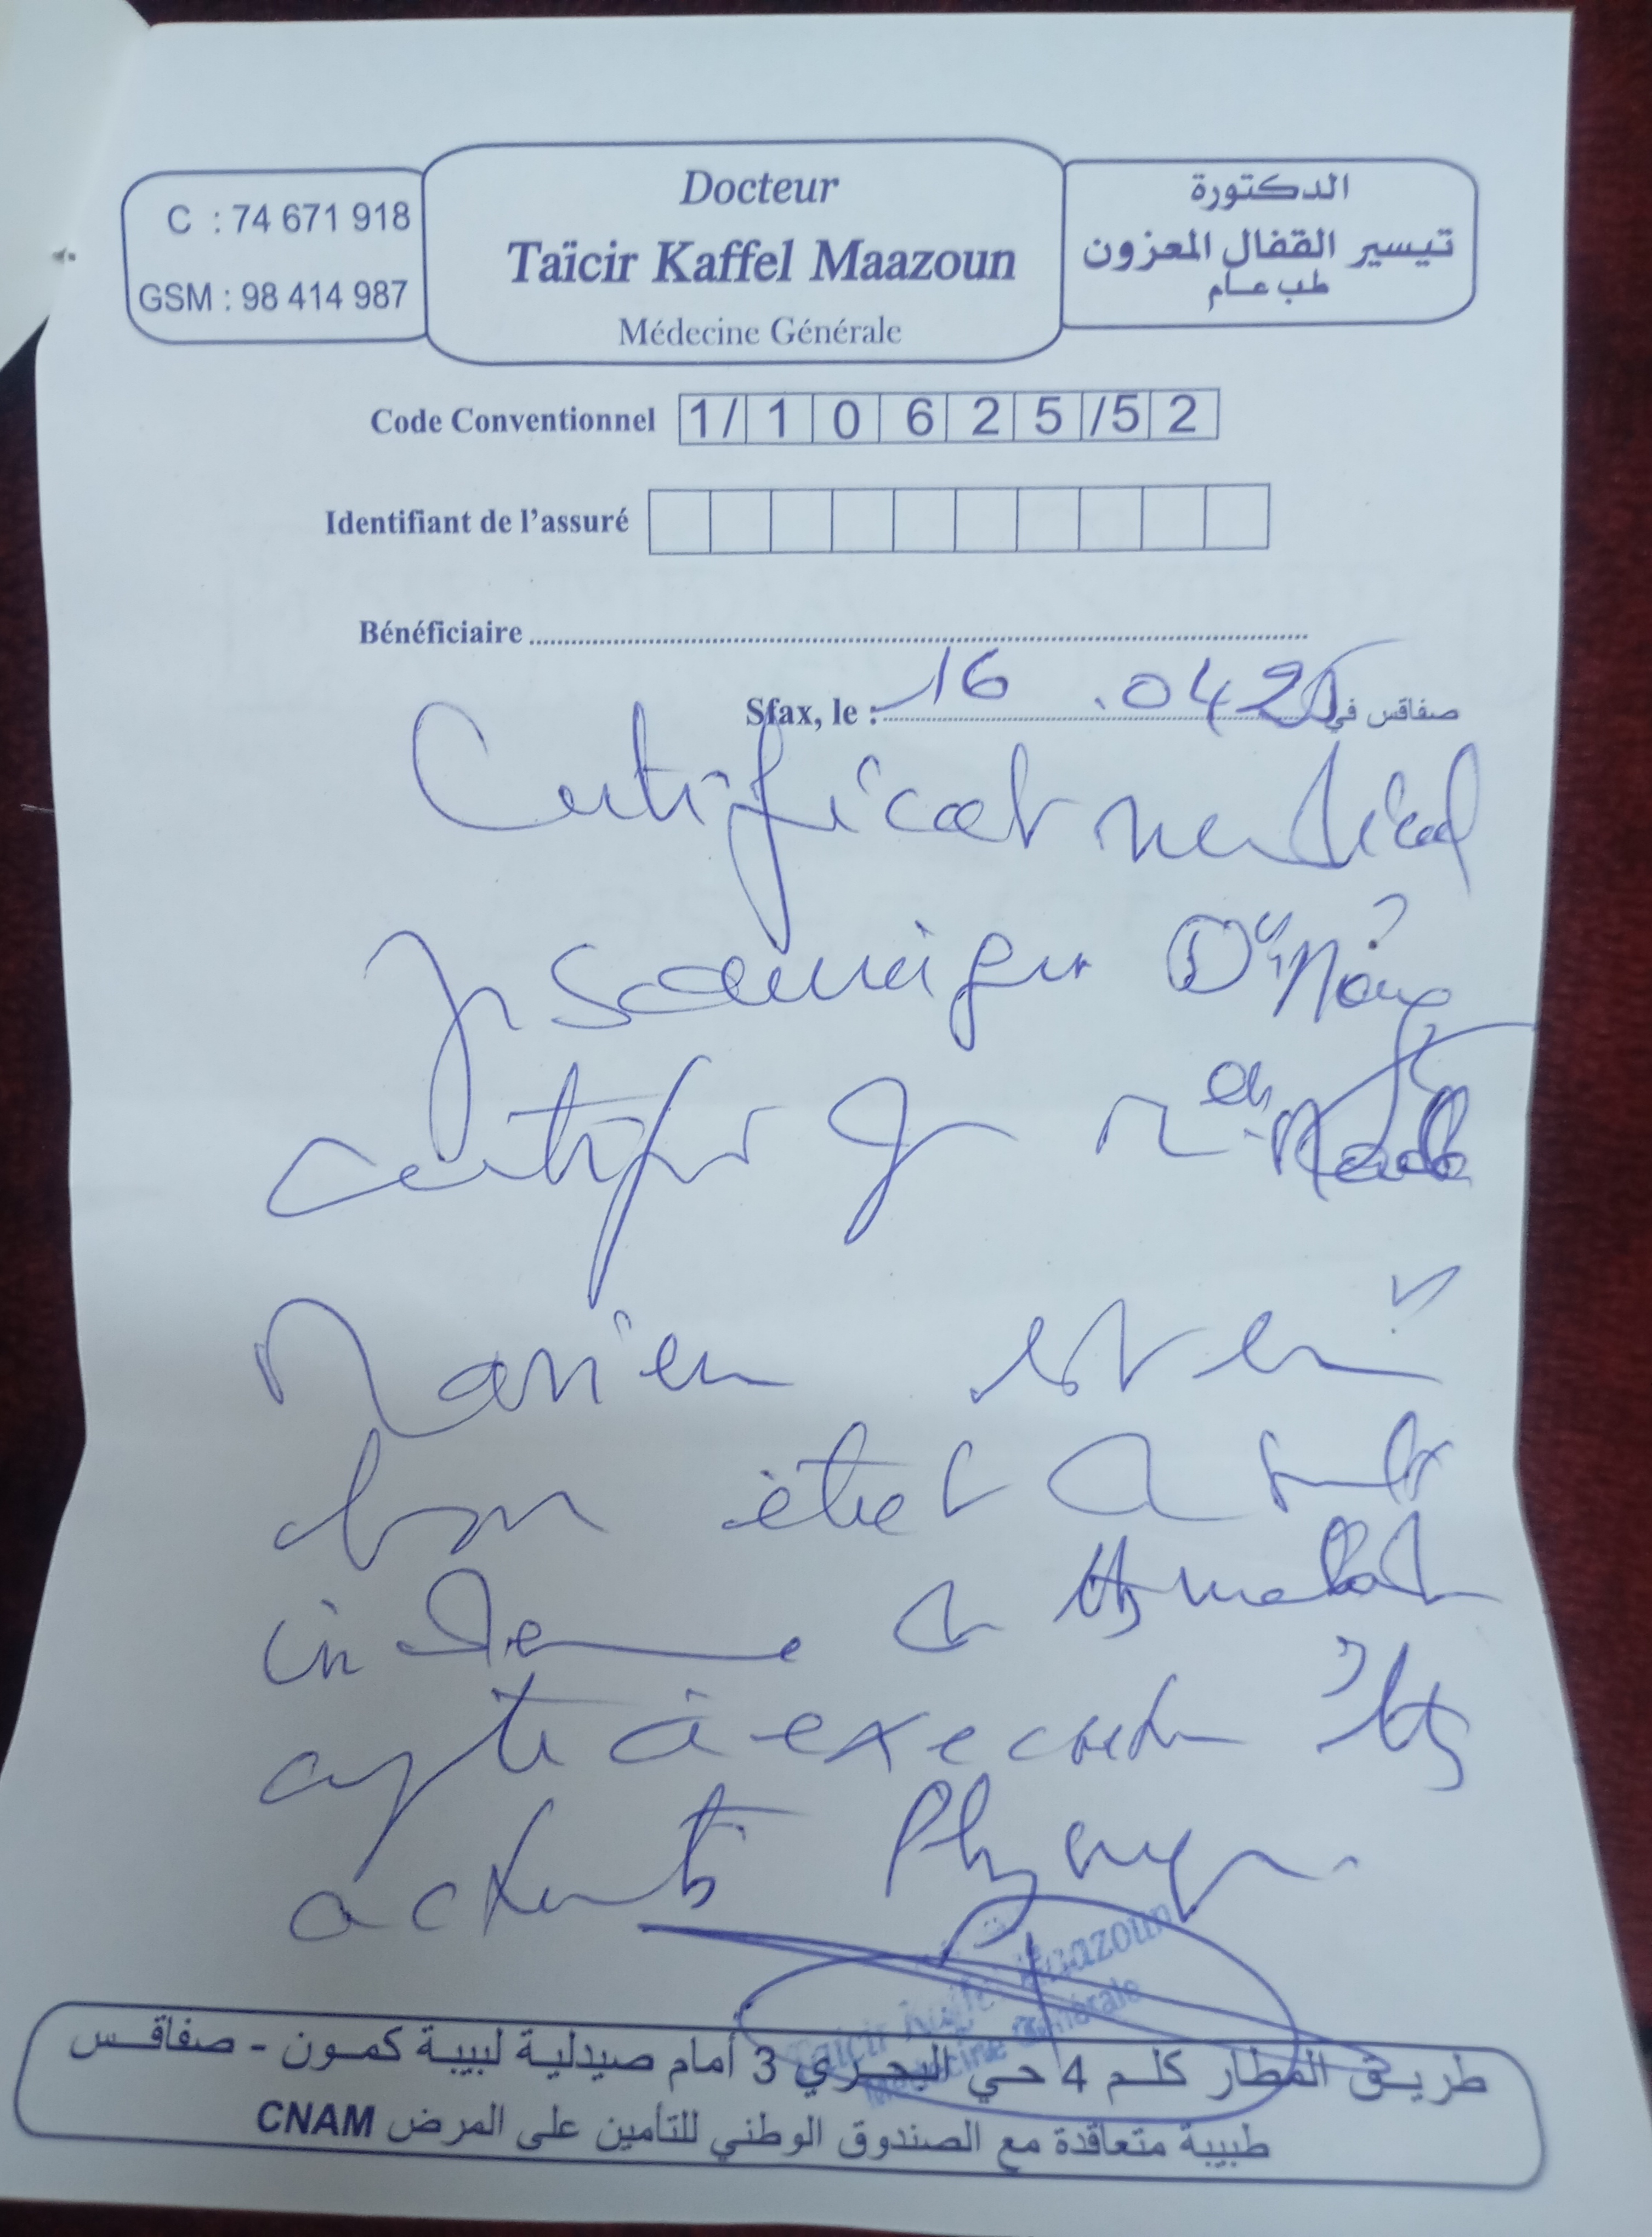 C : 74 671 918
GSM : 98 414 987
Docteur
Taïcir Kaffel Maazoun
Médecine Générale
الدكتورة
تيسير القفال المعزون
طب عام
Code Conventionnel 1/10625/52
Identifiant de l'assuré
Bénéficiaire
Sfax, le : 16 .04 25 صفاقس في
Certificat medical
Je soussigner Dr
certifier que
Mariem est en
bon état de santé
indemne de tts maladie
apte à executer tts
Phy
Taicir Kaffel Maazoun
Médecine Générale
طريق المطار كلم 4 حي البحري 3 أمام صيدلية لبيبة كمون - صفاقس
طبيبة متعاقدة مع الصندوق الوطني للتأمين على المرض CNAM